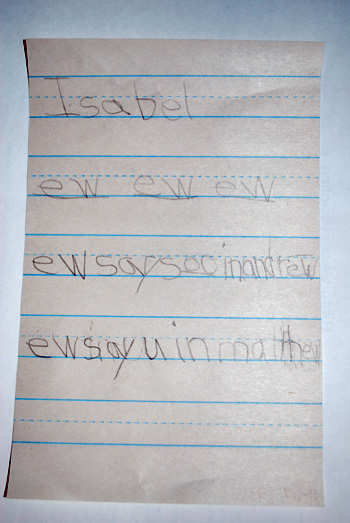 Isabel
ew ew ew
ew says oo in andrew
ew say u in mathew